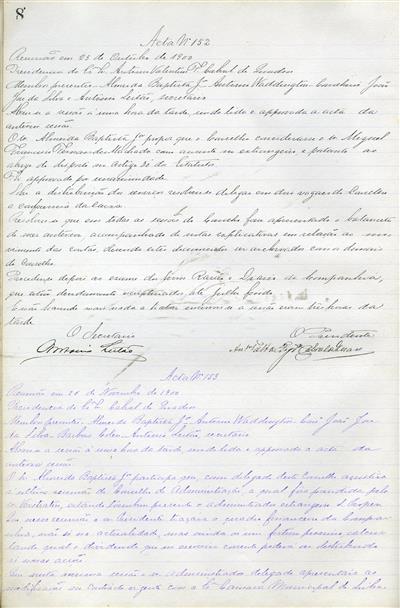 8
Acta Nº 152
Reunião em 25 de Outubro de 1900
Presidencia do Exmo Sr. Antonio Valentim F. Cabral de Quadros
Membros presentes. Almeida Baptista Jor Antonio Waddington Conselheiro João
José da Silva e Antonio Leitão, secretario
Abriu-se a sessão á uma hora da tarde, sendo lida e approvada a acta da
anterior sessão.
O Sr. Almeida Baptista Jor propoz que o Conselho considerasse o Sr. Miguel
Fernandes Machado com ausente no estrangeiro e portanto ao
abrigo do disposto no Artigo 30 dos Estatutos.
Foi approvado por unanimidade.
a distribuição do serviço
e da Caixa.
Resolveu-se que em todas as sessões do Conselho fosse apresentado o balancete
do mez anterior, acompanhado de notas explicativas em relação ao
das contas, devendo estes documentos ser archivados com os demais
do Conselho.
Procedeu-se depois ao exame dos livros Razão e Diario da Companhia,
que estão devidamente escripturados até Julho findo.
E não havendo mais nada a tratar encerrou-se a sessão eram tres horas da
tarde.
O Secretario O Presidente
Antonio Leitão
Acta Nº 153
Reunião em 21 de Novembro de 1900
Presidencia do Exmo Sr. Cabral de Quadros
Membros presentes, Almeida Baptista Jor Antonio Waddington João José
da Silva. Barbosa Colen. Antonio Leitão secretario
Abriu-se a sessão á uma hora da tarde sendo lida e approvada a acta da
anterior sessão.
O Sr. Almeida Baptista Jor participa que, como delegado deste Conselho assistira
á ultima reunião do Conselho de Administração, a qual fora presidida pelo
estando tambem presente o administrador estrangeiro
Em essa reunião o Sr. Presidente traçara o quadro financeiro da Compa-
nhia, não só na actualidade, mas ainda n'um futuro proximo calcu-
lando qual o dividendo que no exercicio corrente poderia ser distribuido
ás novas acções.
Em nesta mesma sessão o Sr. administrador delegado apresentara as
modificações no Contracto vigente com a Exma Camara Municipal de Lisboa